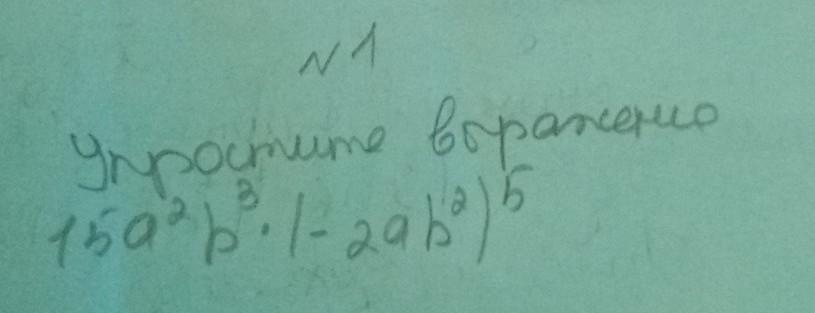 №1
Упростите выражению
15a²b³·(-2ab²)⁵